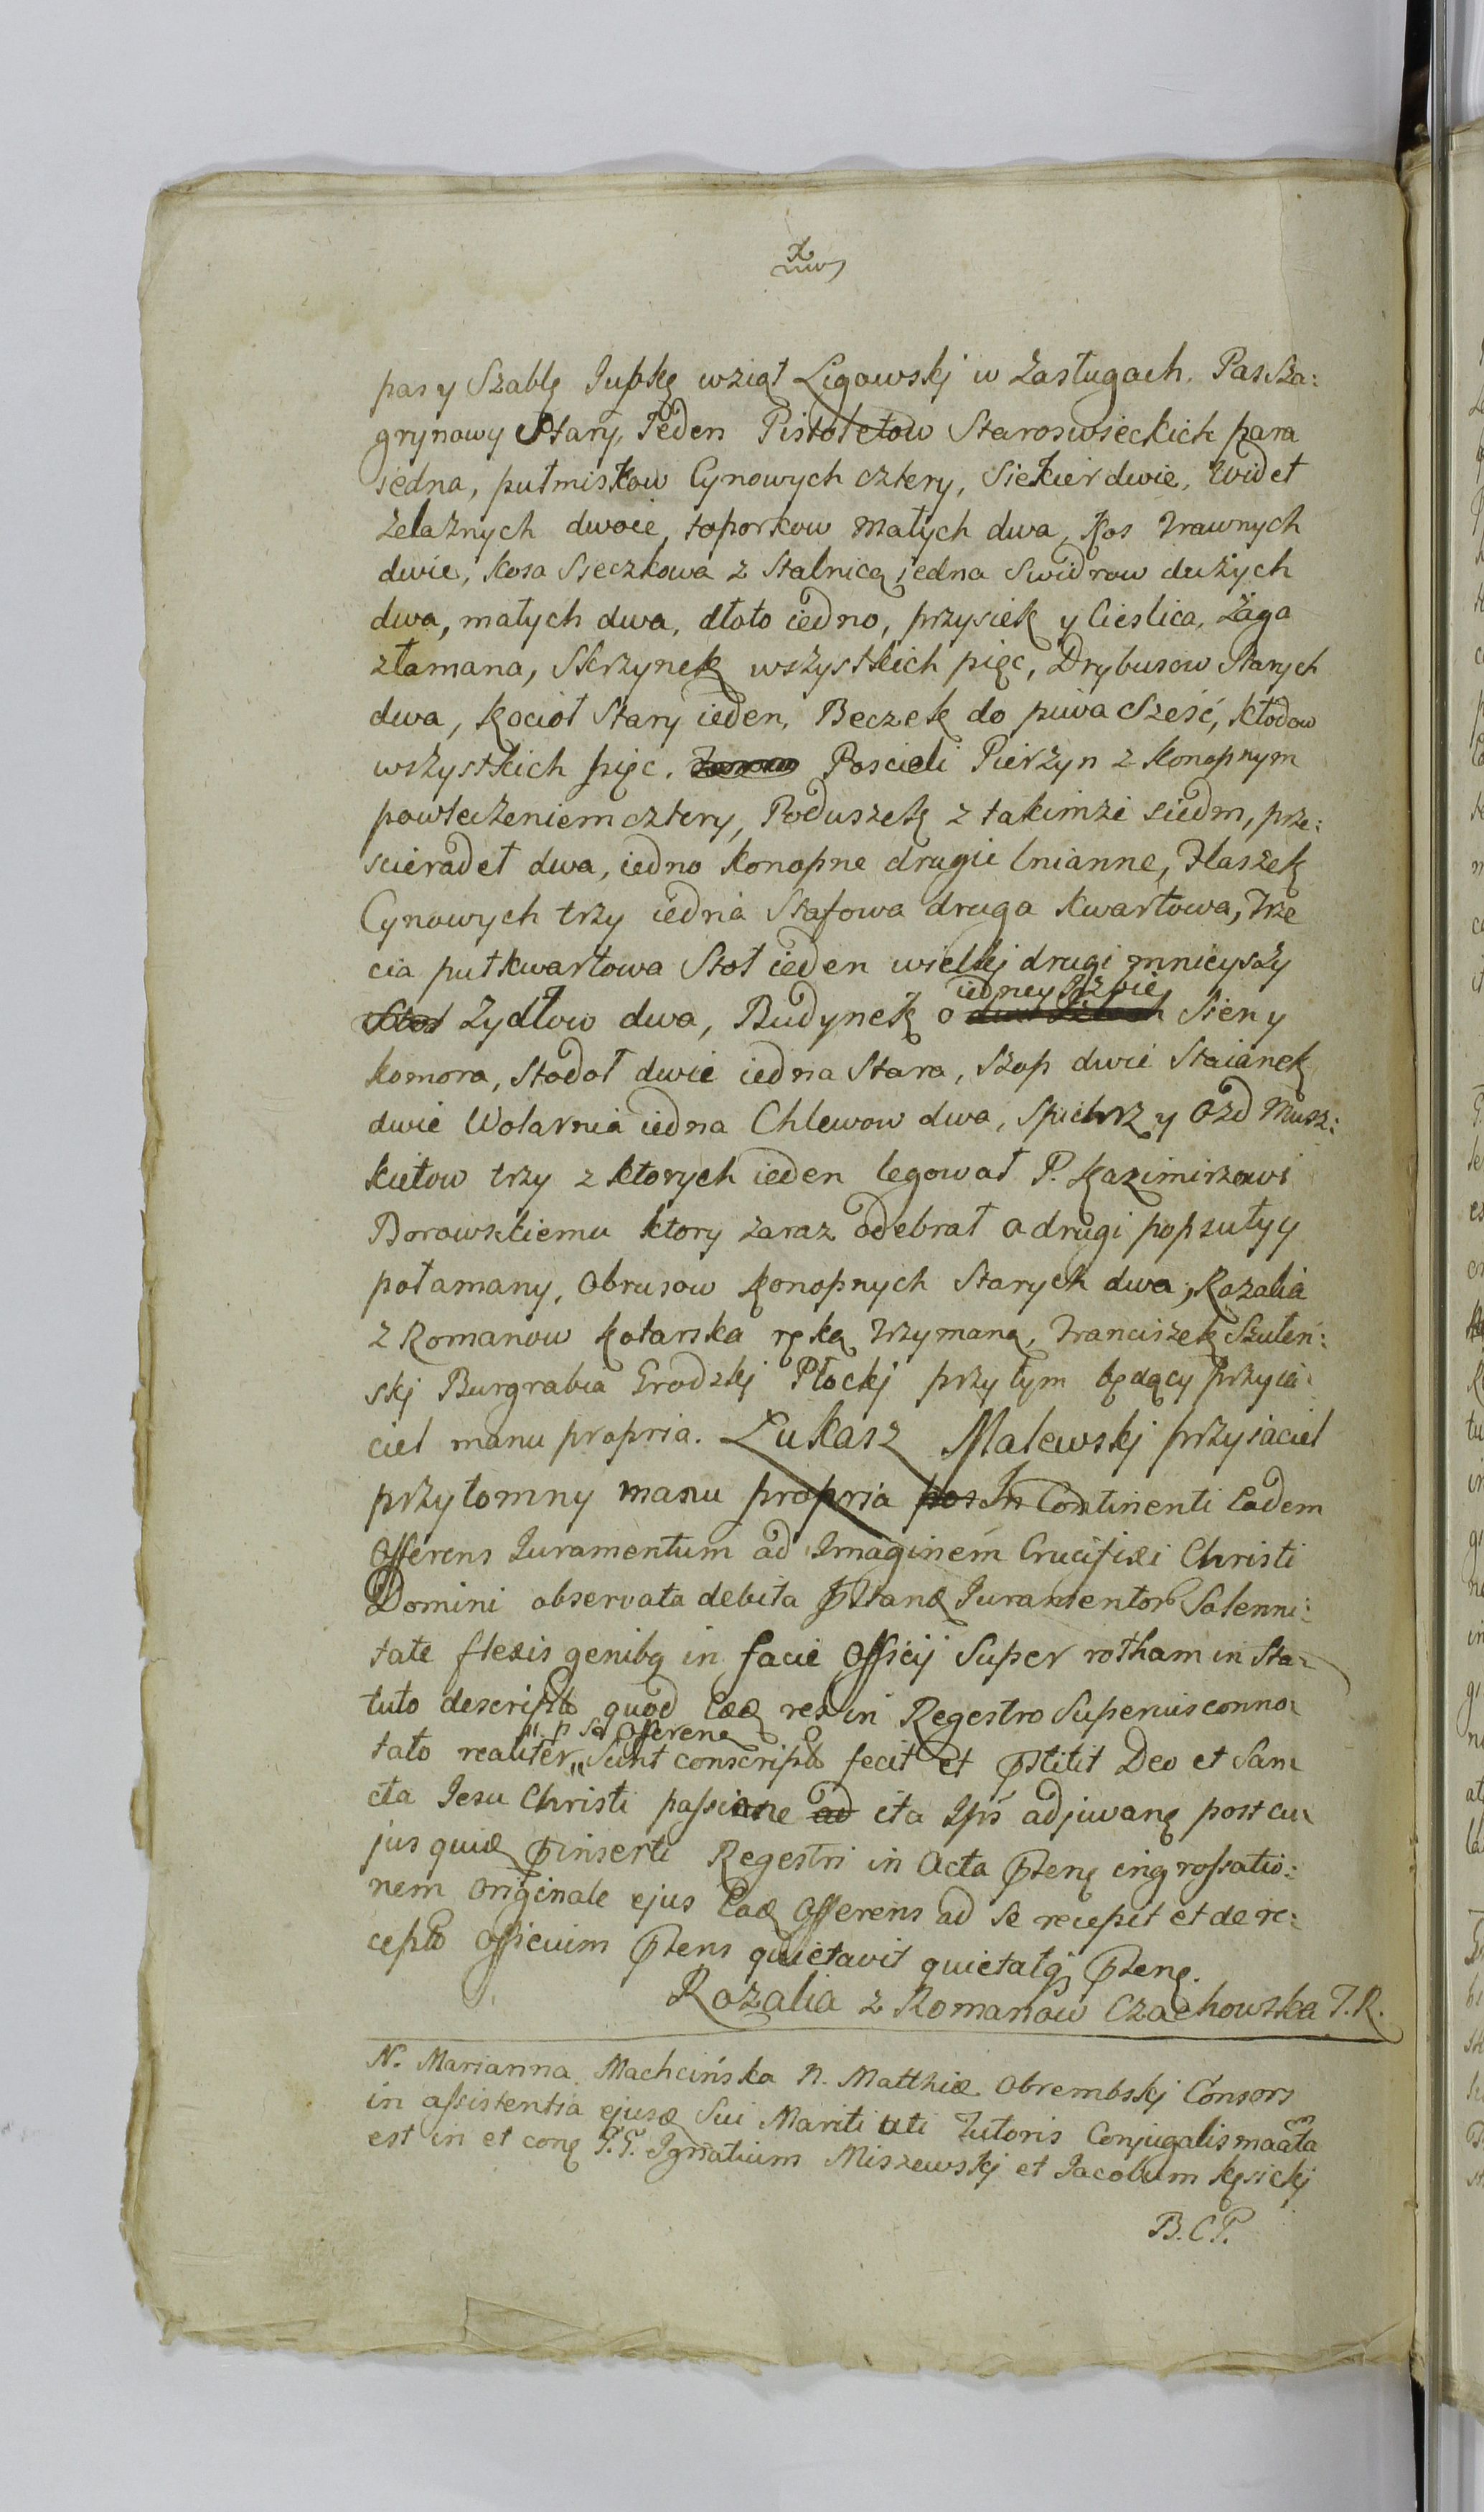 pas y Szablę Iupkę wziął Ligowskj w Zasługach. Pas Sza:
grynowy Stary, Ieden Pistoletow Staroswieckich para
iedna, putmiskow Cynowych cztery, Siekier dwie, Widet
żelaznych dwoie, toporkow małych dwa, Kos trawnych
dwie, Kosa Sieczkowa z Stalnicą iedna Swidrow dużych
dwa, małych dwa, dłoto iedno, przysiek y Cieslica, żaga
złamana, Skrzynek wszystkich pięc, Drybusow Starych
dwa, Kocioł Stary ieden, Beczek do piwa Sześć, kłodow
wszystkich pięc. Poscieli Pierzyn z Konopnym
powleczeniem cztery, Poduszek z takimże siedm, prze:
scieradeł dwa, iedno Konopne drugie lnianne, Flaszek
Cynowych trzy iedna Stafowa druga Kwartowa, trze
cia putkwartowa Stoł ieden wielkj drugi mnieyszy
Stoł Zydlow dwa, Budynek o iedney Izbie Sien y
Komora, Stodoł dwie iedna Stara, Szop dwie Staianek
dwie Wolarnia iedna Chlewow dwa, Spichrz y Ozd Musz:
kietow trzy z ktorych ieden legował P. Kazimirzowi
Borowskiemu ktory zaraz odebrał a drugi popsuty y
połamany, Obrusow Konopnych Starych dwa, Rozalia
z Romanow Kotarska ręką trzymaną, Franciszek Szuleń:
skj Burgrabia Grodzkj Płockj przy tym będący przyia
ciel manu propria. Łukasz Malewskj przyiaciel
przytomny manu propria pos In Continenti Eadem
Offerens Iuramentum ad Imaginem Crucifixi Christi
Domini observata debita Iuramentor Solenni:
tate flexis genibq in facie Officij Super rotham in Sta:
tuto descripto quod res in Regestro Superius conno:
tato realiter p se Offeren sunt conscripto fecit et Deo et San
cta Iesu Christi passione ad ita Ips adjuvanq post cu:
jus inserti Regestri in Acta ingrossatio:
nem Originale ejus Offerens ad se recepit et de re:
cepto Officium quietavit
Rozalia z Romanow Czachowska T.R.
N. Marianna Machcińska N. Matthiæ Obrembskj Consors
in assistentia Sui Mariti uti Tutoris Conjugalis
est in et conq G.G. Ignatium Miszewskj et Iacobum Kęsickj
B.C.P.